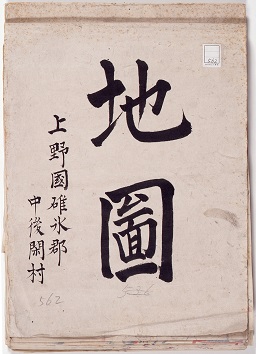 地圖
上野國碓氷郡
中後閑村
562
562